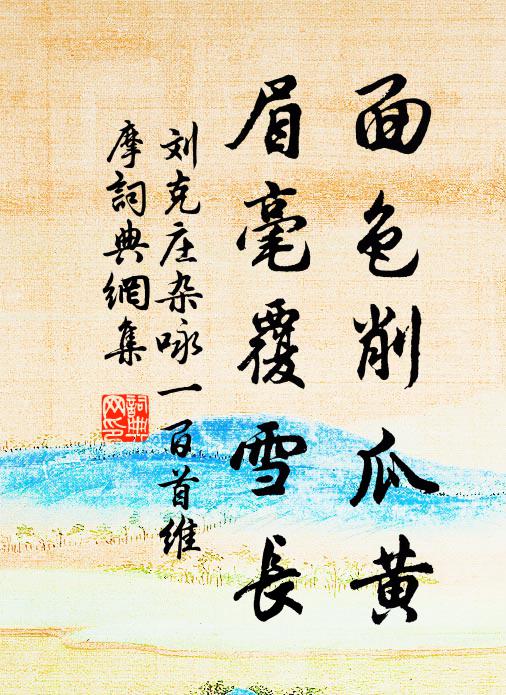 面色削瓜黄
眉毫覆雪長
刘克庄杂咏一百首维
摩詞典網集
詞典网印